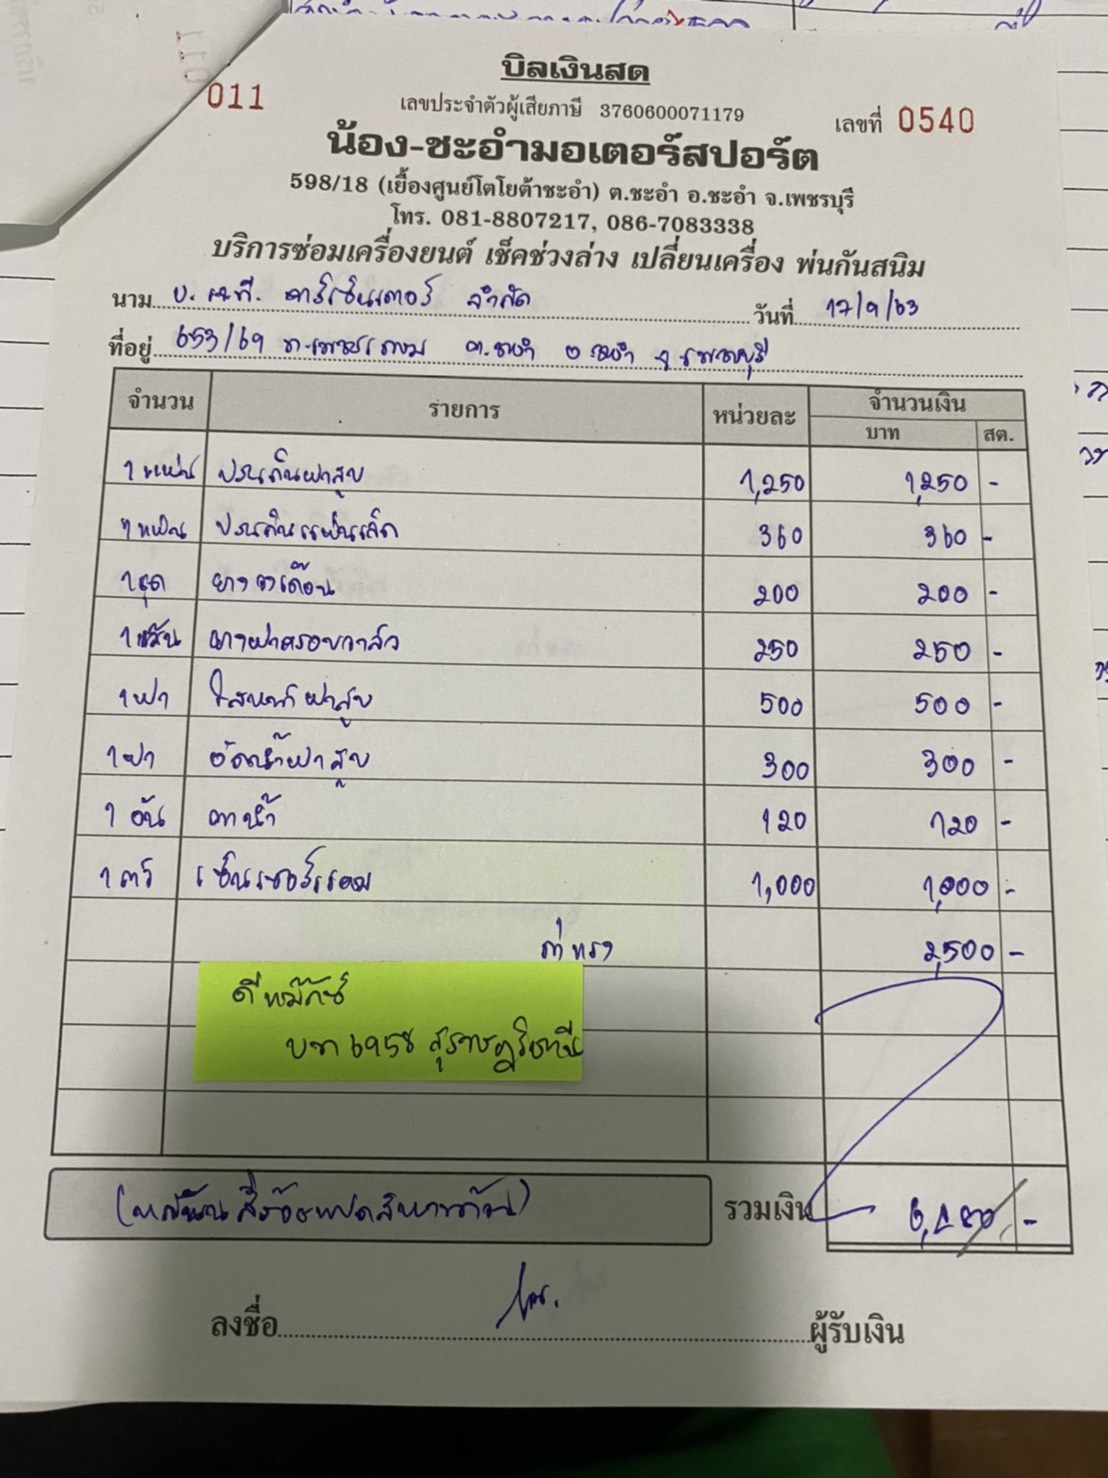 011
บิลเงินสด
เลขประจำตัวผู้เสียภาษี 3760600071179
เลขที่ 0540
น้อง-ชะอำมอเตอร์สปอร์ต
598/18 (เยื้องศูนย์โตโยต้าชะอำ) ต.ชะอำ อ.ชะอำ จ.เพชรบุรี
โทร. 081-8807217, 086-7083338
บริการซ่อมเครื่องยนต์ เช็คช่วงล่าง เปลี่ยนเครื่อง พ่นกันสนิม
นาม บ. เอ.ที. คาร์เซ็นเตอร์ จำกัด วันที่ 17/9/63
ที่อยู่ 653/69 ถ.เพชรเกษม ต.ชะอำ อ.ชะอำ จ.เพชรบุรี
จำนวน รายการ หน่วยละ จำนวนเงิน
บาท สต.
1 แผ่น ปะเก็นฝาสูบ 1,250 1,250 -
1 แผ่น 360 360 -
1 ชุด 200 200 -
1 เส้น ยางฝาครอบวาล์ว 250 250 -
1 ฝา ไสหน้าฝาสูบ 500 500 -
1 ฝา ฝาสูบ 300 300 -
1 อัน ตาน้ำ 120 120 -
1 ตัว เซ็นเซอร์ 1,000 1,000 -
ค่าแรง 2,500 -
ดีแม๊กซ์
6958 สุราษฎร์ธานี
(หกพันสี่ร้อยแปดสิบบาทถ้วน) รวมเงิน 6,480 -
ลงชื่อ ผู้รับเงิน